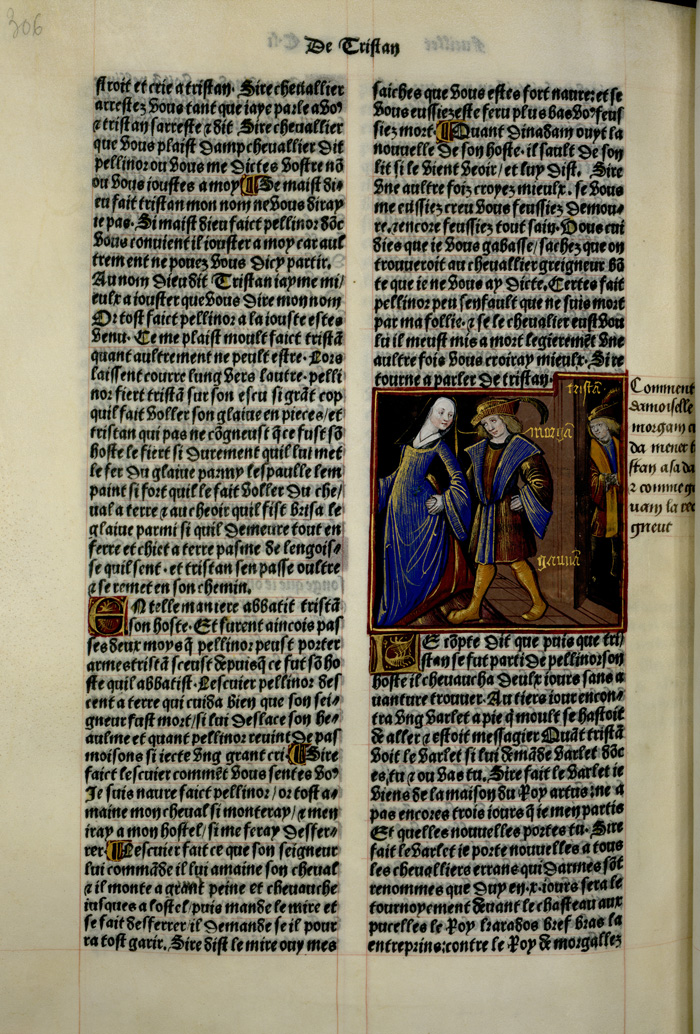 306
De Tristan
stroit et crie a tristan. Sire chevallier
arrestez vous tant que iaye parle a vo⁹
⁊ tristan sarreste ⁊ dit Sire chevallier
que vous plaist Dampchevallier dit
pellinor ou vous me dictes vostre nõ
ou vous ioustes a moy ¶ Se maist di/
eu fait tristan mon nom ne vous diray
ie pas. Si maist dieu faict pellinor dõc
vous convient il iouster a moy car aul
trement ne povez vous dicy partir.
Au nom dieu dit Tristan iayme mi/
eulx a iouster que vous dire mon nom
Or tost faict pellinor a la iouste estes
venu. Ce me plaist moult faict tristã
quant aultrement ne peult estre. Lors
laissent courre lung vers lautre. pelli
nor fiert tristã sur son escu si grãt cop
quil fait voller son glaive en pieces/et
tristan qui pas ne cõgneust q̃ ce fust sõ
hoste le fiert si durement quil lui met
le fer du glaive parmy lespaulle sem
paint si fort quil le fait voller du che/
val a terre ⁊ au cheoir quil fist brisa le
glaive parmi si quil demeure tout en
ferre et chiet a terre pasme de lengois/
se quil sent. et tristan sen passe oultre
⁊ se remet en son chemin.
EN telle maniere abbatit tristã
son hoste. Et furent aincois pas
ses deux moys q̃ pellinor peust porter
armes tristã sceust depuis q̃ ce fut sõ ho
ste quil abbatist. Lescuier pellinor des
cent a terre qui cuida bien que son sei/
gneur fust mort/si lui deslace son he/
aulme et quant pellinor revint de pas
moisons si iecte vng grant cri. ¶ Sire
faict lescuier commẽt vous sentes vo⁹
Je suis navre faict pellinor/or tost a/
maine mon cheval si monteray/⁊ men
iray a mon hostel/si me feray desfer/
rer. ¶ Lescuier fait ce que son seigneur
lui commãde il lui amaine son cheval
⁊ il monte a grant peine et chevauche
iusques a lostel/puis mande le mire et
se fait desferrer il demande se il pour
ra tost garir. Sire dist le mire ouy mes
saiches que vous estes fort navre: et se
vous eussiez este feru plus bas vo⁹ feus
siez mort. ¶ Quant dinadam ouyt la
nouvelle de son hoste. il sault de son
lit si le vient veoir/et luy dist. Sire
vne aultre foiz croyez mieulx. se vous
me eussiez creu vous feussiez demou/
re. encore feussiez tout sain. Vous cui
dies que ie vous gabasse/sachez que on
trouveroit au chevallier greigneur bõ
te que ie ne vous ay dicte. Certes fait
pellinor peu sen fault que ne suis mort
par ma follie. ⁊ se le chevalier eust vou
lu il meust mis a mort legieremẽt vne
aultre fois vous croiray mieulx. Si re
tourne a parler de tristan.
tristã
morgã
gavuã
Comment
damoiselle
morgain
da mener
stan a sa da
⁊ comme g
vain la rec
gneut
LE cõpte dit que puis que tri/
stan se fut parti de pellinor son
hoste il chevaucha deulx iours sans a
vanture trouver. Au tiers iour encon/
tra vng varlet a pie q̃ moult se hastoit
de aller ⁊ estoit messagier Quãt tristã
voit le varlet si lui demãde varlet dõc
es tu ⁊ ou vas tu. Sire fait le varlet ie
viens de la maison du Roy artus: ne a
pas encores trois iours q̃ ie men partis
Et quelles nouvelles portes tu. Sire
fait le varlet ie porte nouvelles a tous
les chevalliers errans qui darmes sõt
renommes que duy en .x. iours sera le
tournoyement devant le chasteau aux
pucelles le Roy karados bref bras la
entreprins: contre le Roy de morgallez